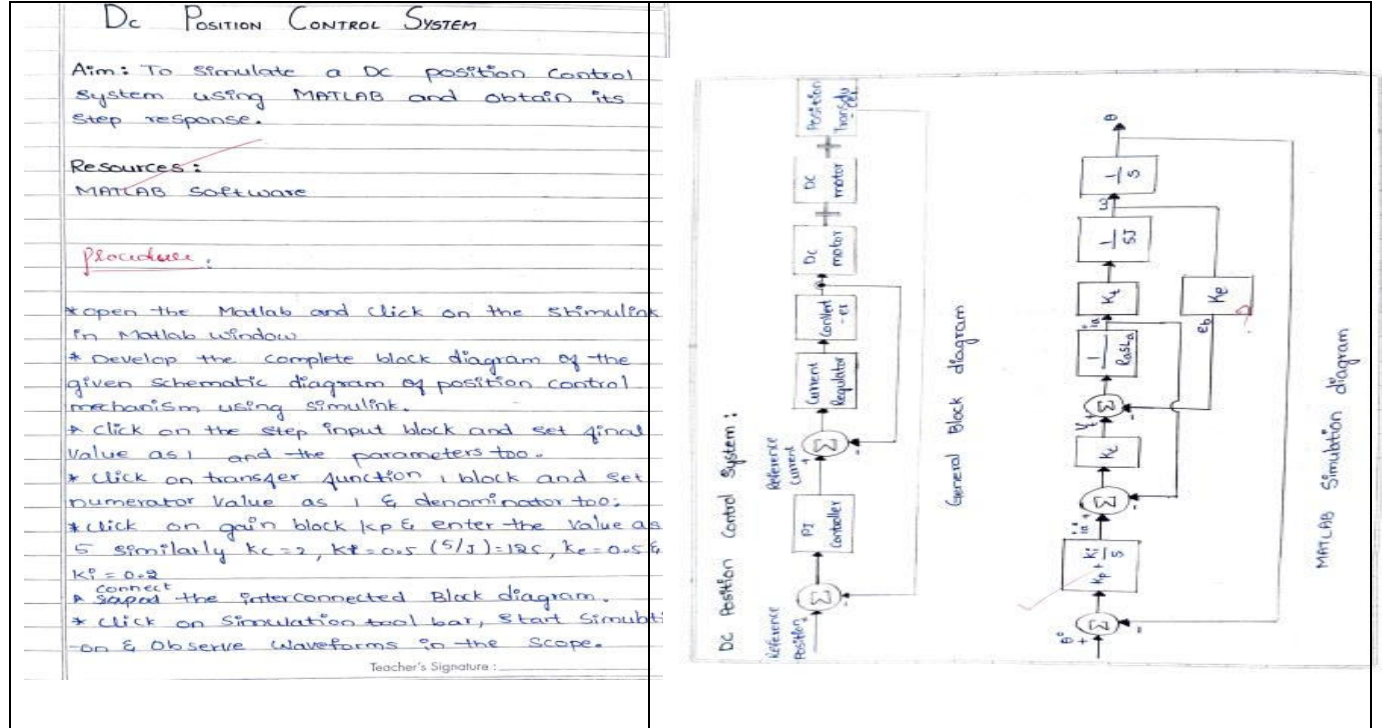 Dc Position Control System
Aim: To simulate a DC position control
system using MATLAB and obtain its
step response.
Resources:
MATLAB Software
Procedure:
*open the Matlab and click on the stimulink
in Matlab window
* Develop the complete block diagram of the
given schematic diagram of position control
mechanism using simulink.
* Click on the step input block and set final
value as 1 and the parameters too.
* Click on transfer function 1 block and set
numerator value as 1 & denominator too;
*click on gain block kp & enter the value as
5 similarly kc=2, kt=0.5 (S/J)=12s, ke=0.5 &
ki=0.2
connect
* the interconnected Block diagram.
* click on Simulation tool bar, start Simulati
-on & Observe waveforms in the Scope.
Teacher's Signature :
DC Position Control System :
Reference
Position
+
Σ
-
PI
Controller
Reference
Current
+
Σ
-
Current
Regulator
Convert
-er
DC
motor
DC
motor
Position
Transdu
cer
General Block diagram
θ*
+
Σ
-
Kp + Ki/S
ia*
+
Σ
-
Kc
Vt
+
Σ
-
1/RaSLa
ia
Kt
1/SJ
ω
1/S
θ
eb
Ke
MATLAB Simulation diagram